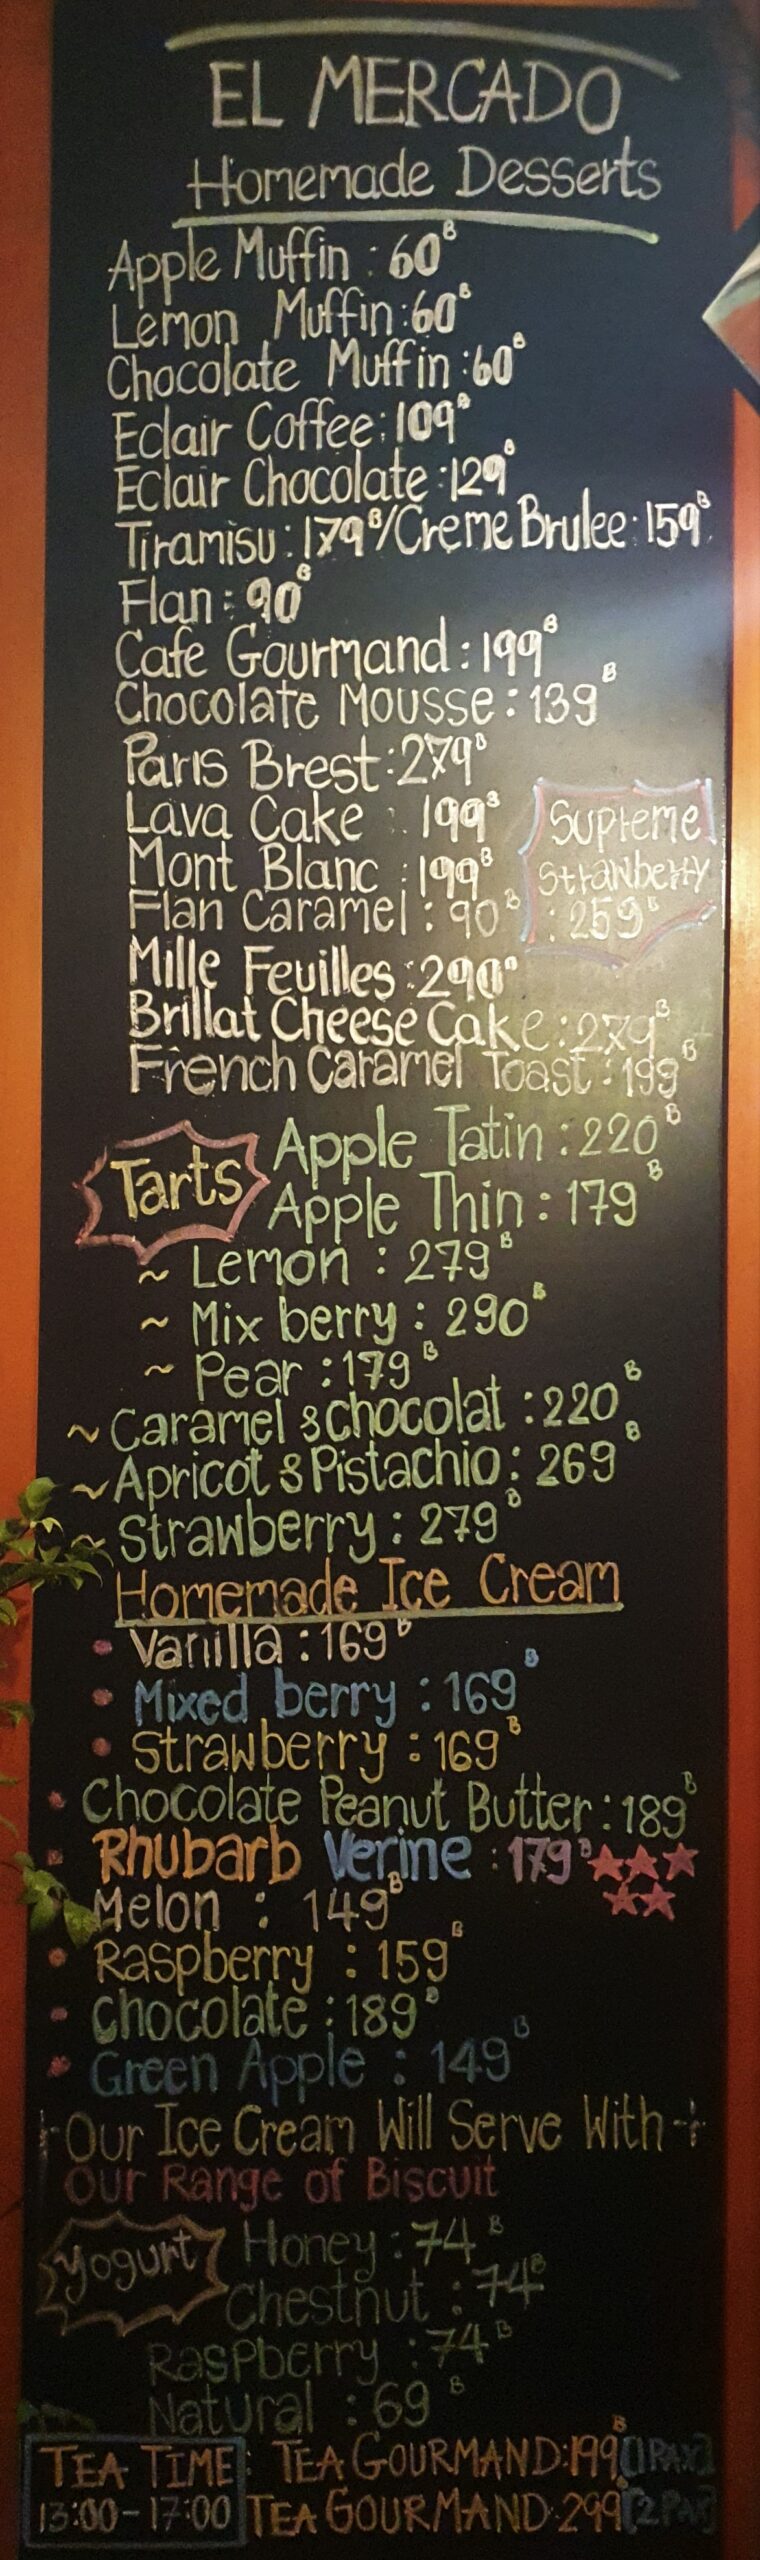 EL MERCADO
Homemade Desserts
Apple Muffin : 60B
Lemon Muffin : 60B
Chocolate Muffin : 60B
Eclair Coffee : 109B
Eclair Chocolate : 129B
Tiramisu : 179B / Creme Brulee : 159B
Flan : 90B
Cafe Gourmand : 199B
Chocolate Mousse : 139B
Paris Brest : 279B
Lava Cake : 199B
Mont Blanc : 199B
Flan Caramel : 90B
Supreme
Strawberry
: 259B
Mille Feuilles : 290B
Brillat Cheese Cake : 279B
French Caramel Toast : 199B
Tarts
Apple Tatin : 220B
Apple Thin : 179B
~ Lemon : 279B
~ Mix berry : 290B
~ Pear : 179B
~ Caramel & chocolat : 220B
~ Apricot & Pistachio : 269B
~ Strawberry : 279B
Homemade Ice Cream
• Vanilla : 169B
• Mixed berry : 169B
• Strawberry : 169B
• Chocolate Peanut Butter : 189B
• Rhubarb Verine : 179B ★★★★★
Melon : 149B
• Raspberry : 159B
• Chocolate : 189B
• Green Apple : 149B
Our Ice Cream Will Serve With
Our Range of Biscuit
Yogurt
Honey : 74B
Chestnut : 74B
Raspberry : 74B
Natural : 69B
TEA TIME : TEA GOURMAND : 199B [1 PAX]
13:00 - 17:00 TEA GOURMAND : 299B [2 PAX]